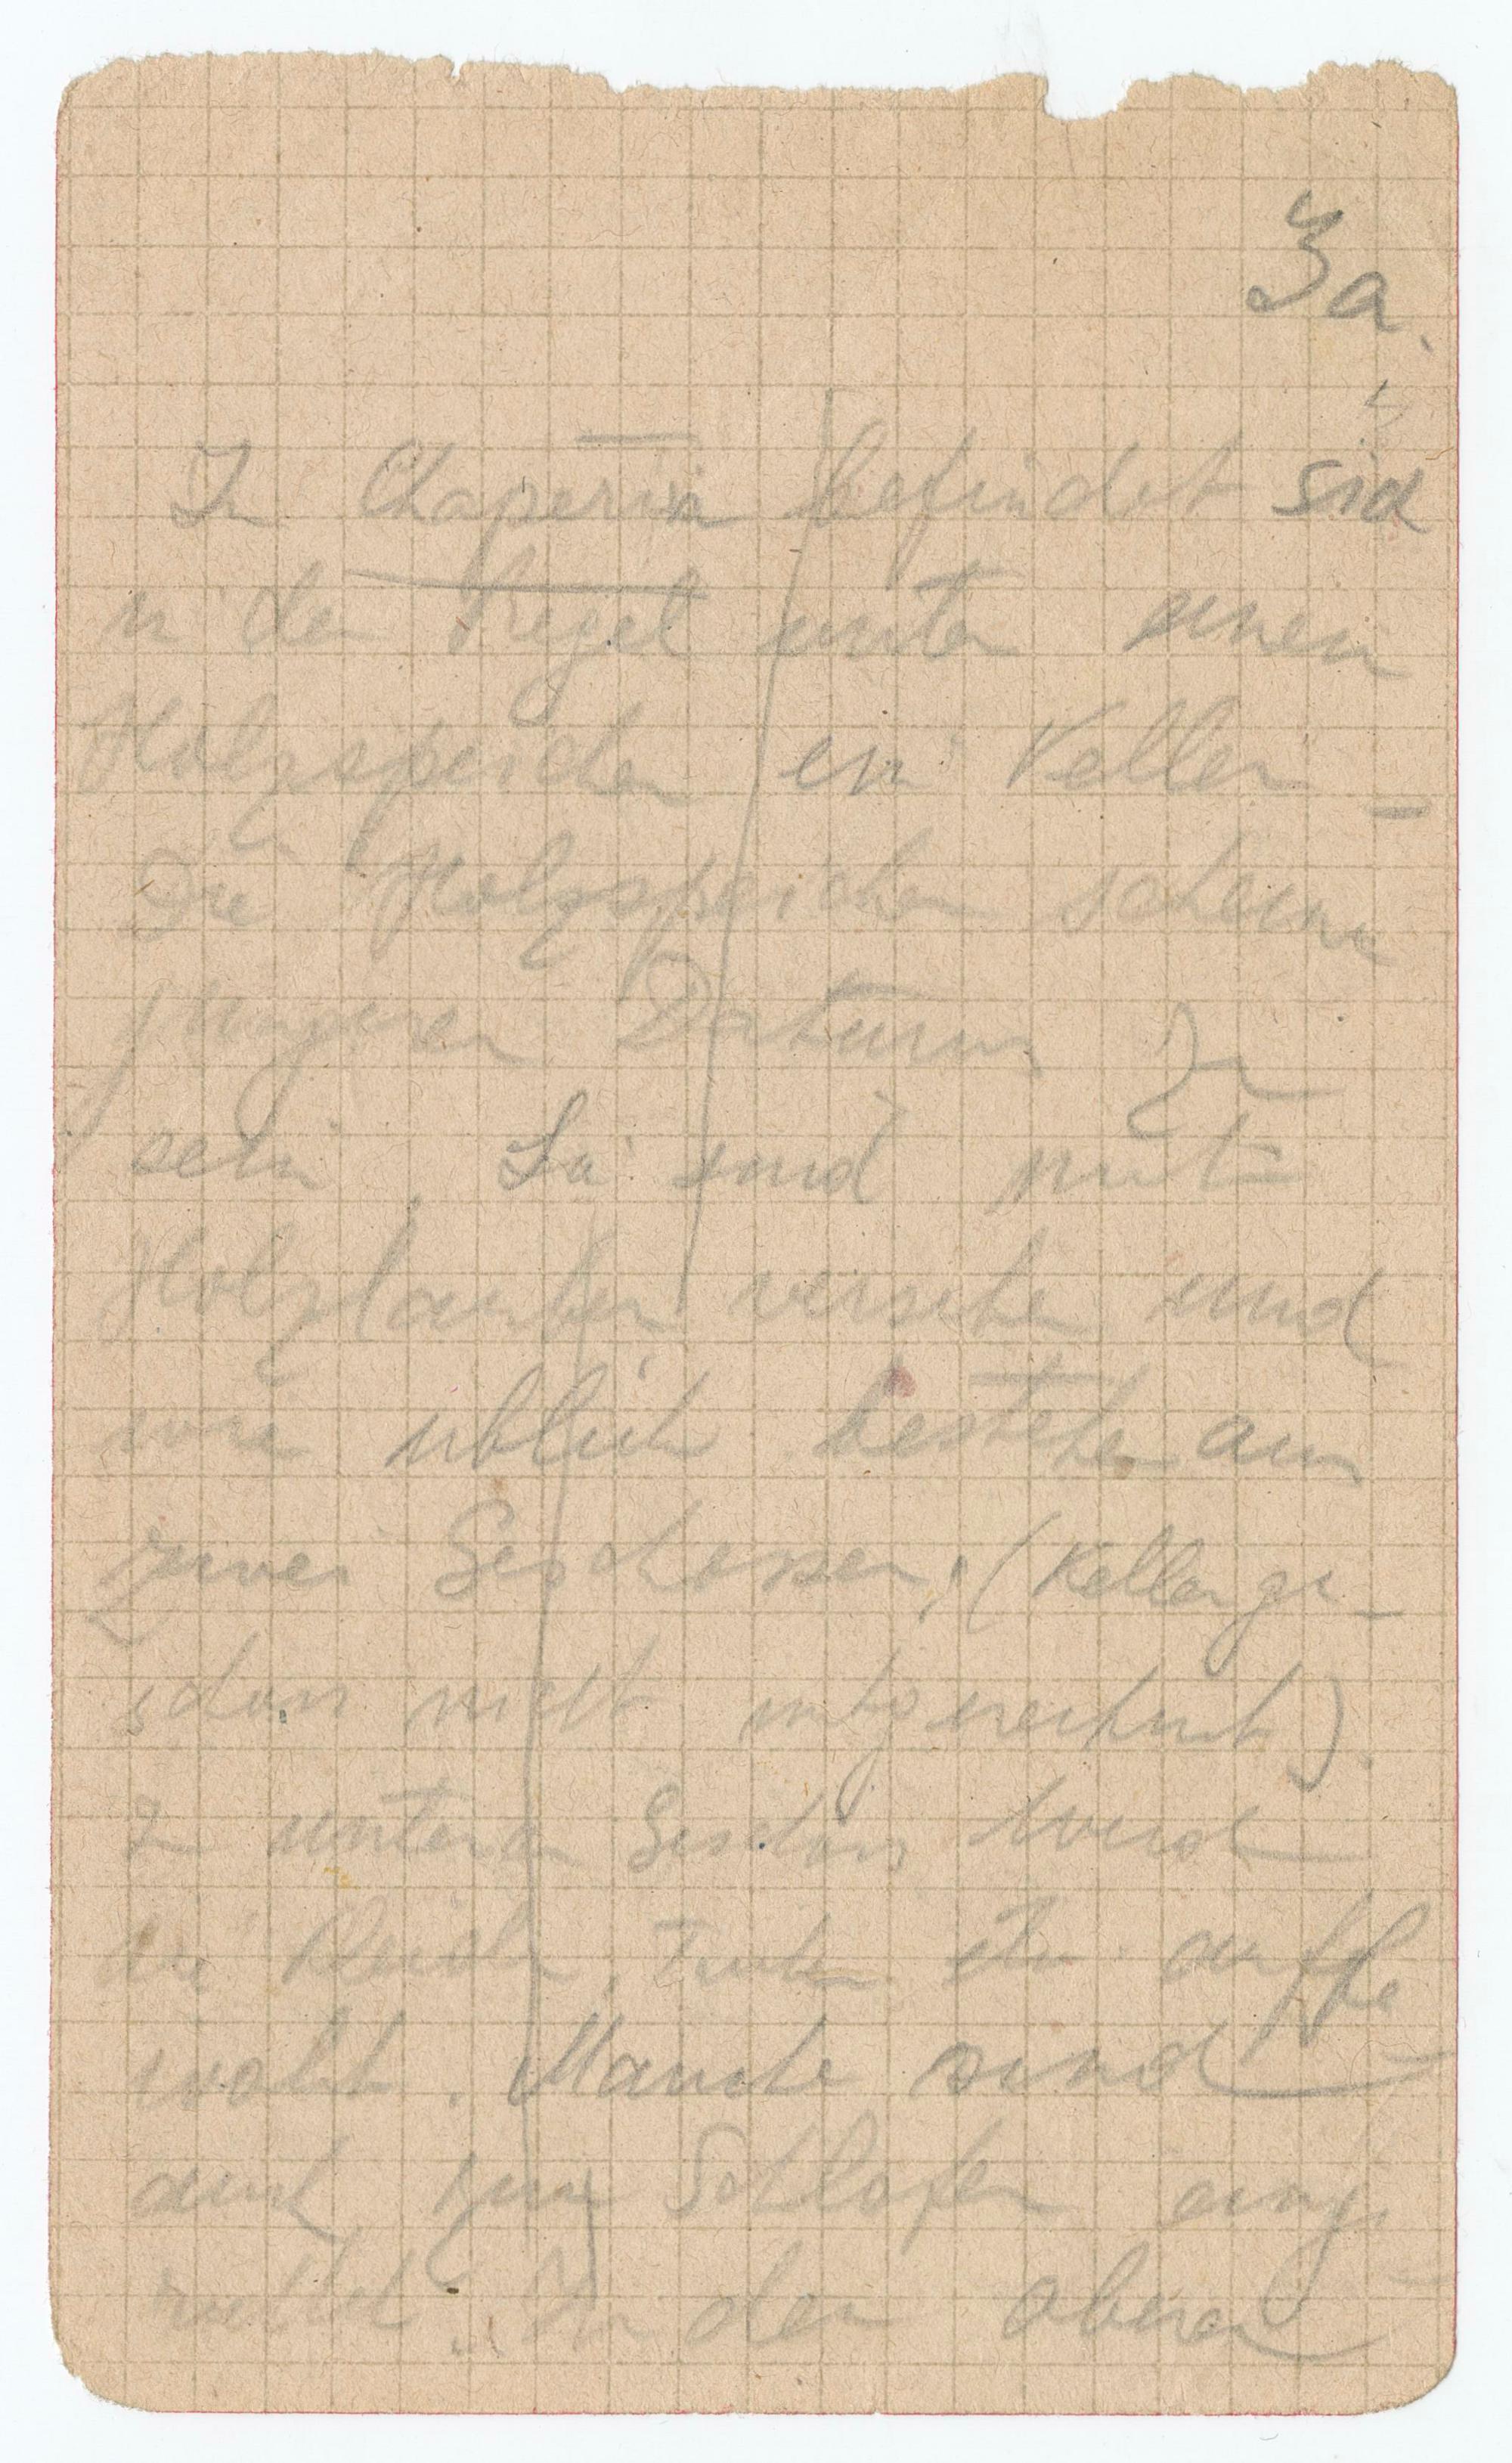 3a.
In Chaperin befindet sich
in der Regel unter einem
Holzspeicher ein Keller –
Die Holzspeicher scheinen
jüngeren Datums zu
sein. Sie sind mit
Holzlauben versehen und
wie üblich bestehen aus
zwei Geschossen, (Kellerge-
schoss nicht mitgerechnet).
Im unteren Geschoss wird
die Kleider, Truhen etc aufbe
wahrt. Manche sind
auch zum Schlafen einge
richtet. In den oberen